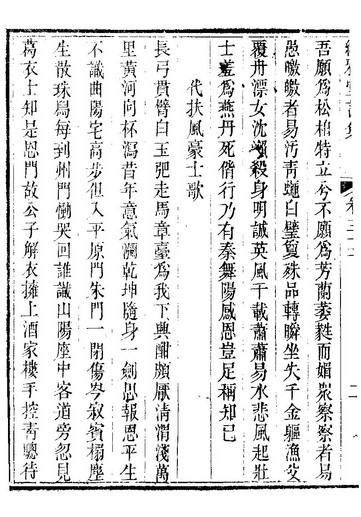 吾願為松柏特立兮不願為芳蘭萎蕤而媚眾察察者易
愚皦皦者易汚靑蠅白璧夐殊品轉瞬坐失千金軀漁父
覆舟漂女沈瀨殺身明誠英風千載蕭蕭易水悲風起壯
士羞為燕丹死偕行乃有秦舞陽感恩豈足稱知已
代扶風豪士歌
長弓貫臂白玉弝走馬章臺為我下興酣頗厭淸渭淺萬
里黃河向杯瀉昔年意氣瀾乾坤隨身一劍思報恩平生
不識曲陽宅高步但入平原門朱門一閉傷岑寂賓榻塵
生散珠舄每到州門慟哭回誰識山陽座中客道旁忽見
葛衣士知是恩門故公子解衣擁上酒家樓手控靑驄待